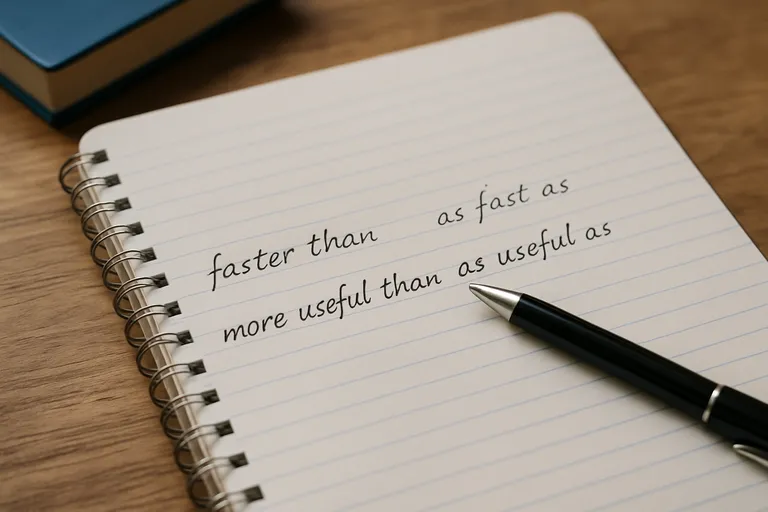 faster than as fast as
more useful than as useful as